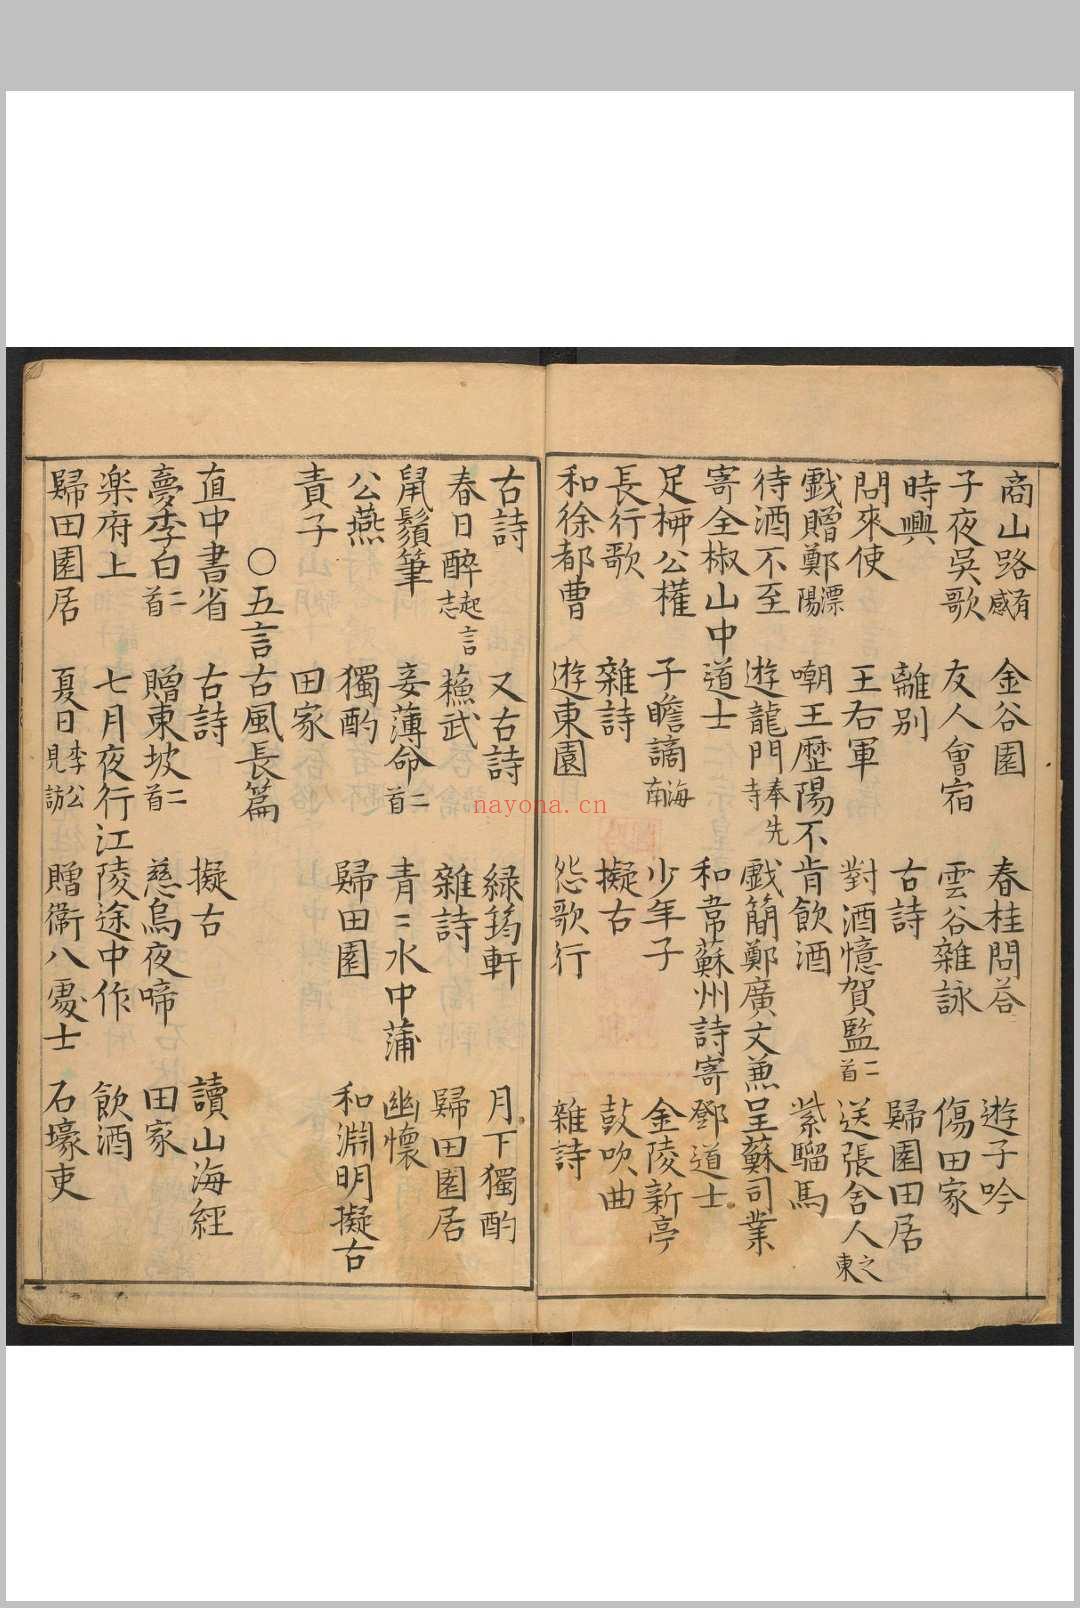 商山路有感 金谷園 春桂問荅 遊子吟
子夜吳歌 友人會宿 雲谷雜詠 傷田家
時興 離别 古詩 歸園田居
問來使 王右軍 對酒憶賀監二首 送張舍人之東
戲贈鄭漂陽 嘲王歷陽不肯飲酒 紫騮馬
待酒不至 遊龍門奉先寺 戲簡鄭廣文兼呈蘇司業
寄全椒山中道士 和韋蘇州詩寄鄧道士
足柳公權 子瞻謫海南 少年子 金陵新亭
長行歌 雜詩 擬古 鼓吹曲
和徐都曹 遊東園 怨歌行 雜詩
古詩 又古詩 緑筠軒 月下獨酌
春日醉起言志 蘓武 雜詩 歸田園居
鼠鬚筆 妾薄命二首 青〻水中蒲 幽懷
公燕 獨酌 歸田園 和淵明擬古
責子 田家
〇五言古風長篇
直中書省 古詩 擬古 讀山海經
夢李白二首 贈東坡二首 慈烏夜啼 田家
楽府上 七月夜行江陵途中作 飲酒
歸田園居 夏日李公見訪 贈衛八處士 石壕吏
nayona.cn